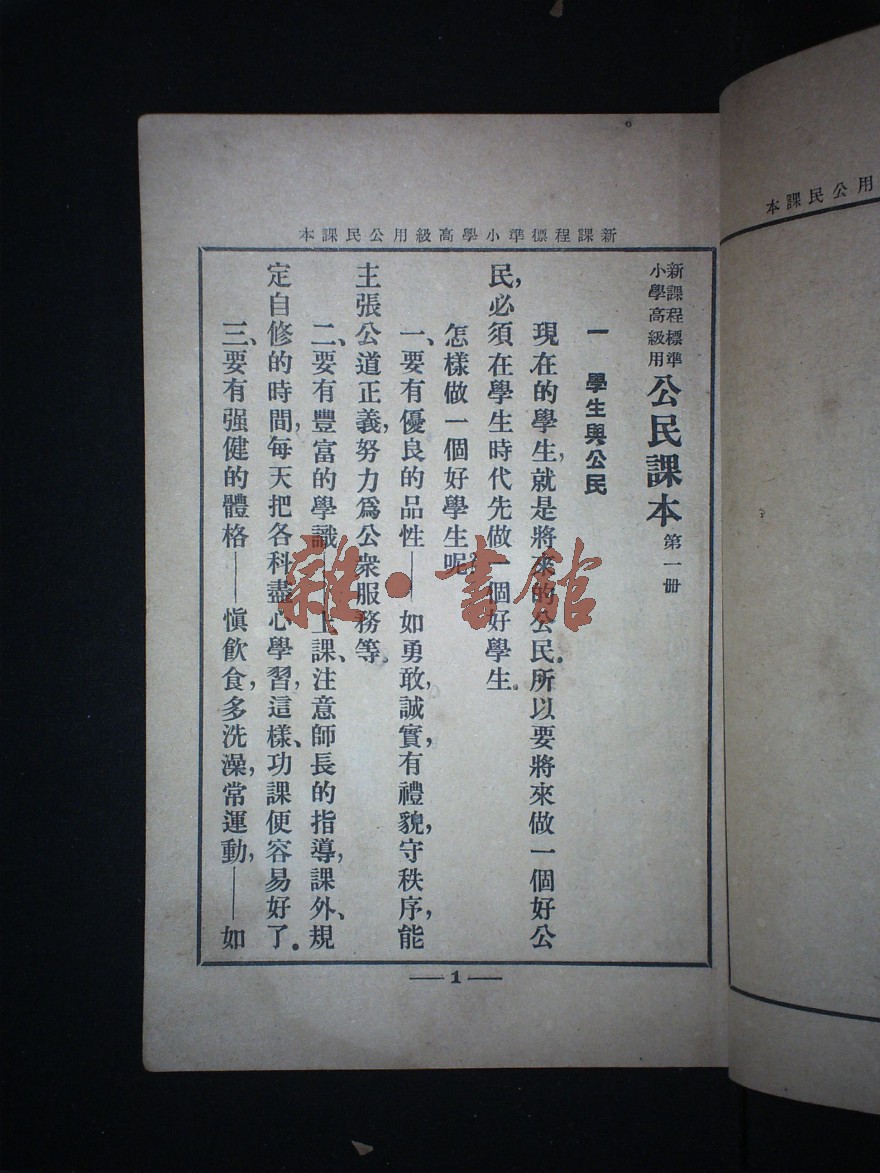 新課程標準小學高級用公民課本
新課程標準
小學高級用
公民課本 第一册
一 學生與公民
現在的學生,就是將來的公民。所以要將來做一個好公
民,必須在學生時代先做一個好學生。
怎樣做一個好學生呢?
一、要有優良的品性——如勇敢,誠實,有禮貌,守秩序,能
主張公道正義,努力爲公衆服務等。
二、要有豐富的學識——上課、注意師長的指導,課外、規
定自修的時間,每天把各科盡心學習,這樣、功課便容易好了。
三、要有强健的體格——愼飲食,多洗澡,常運動,——如
—1—
用公民課本
雜·書館